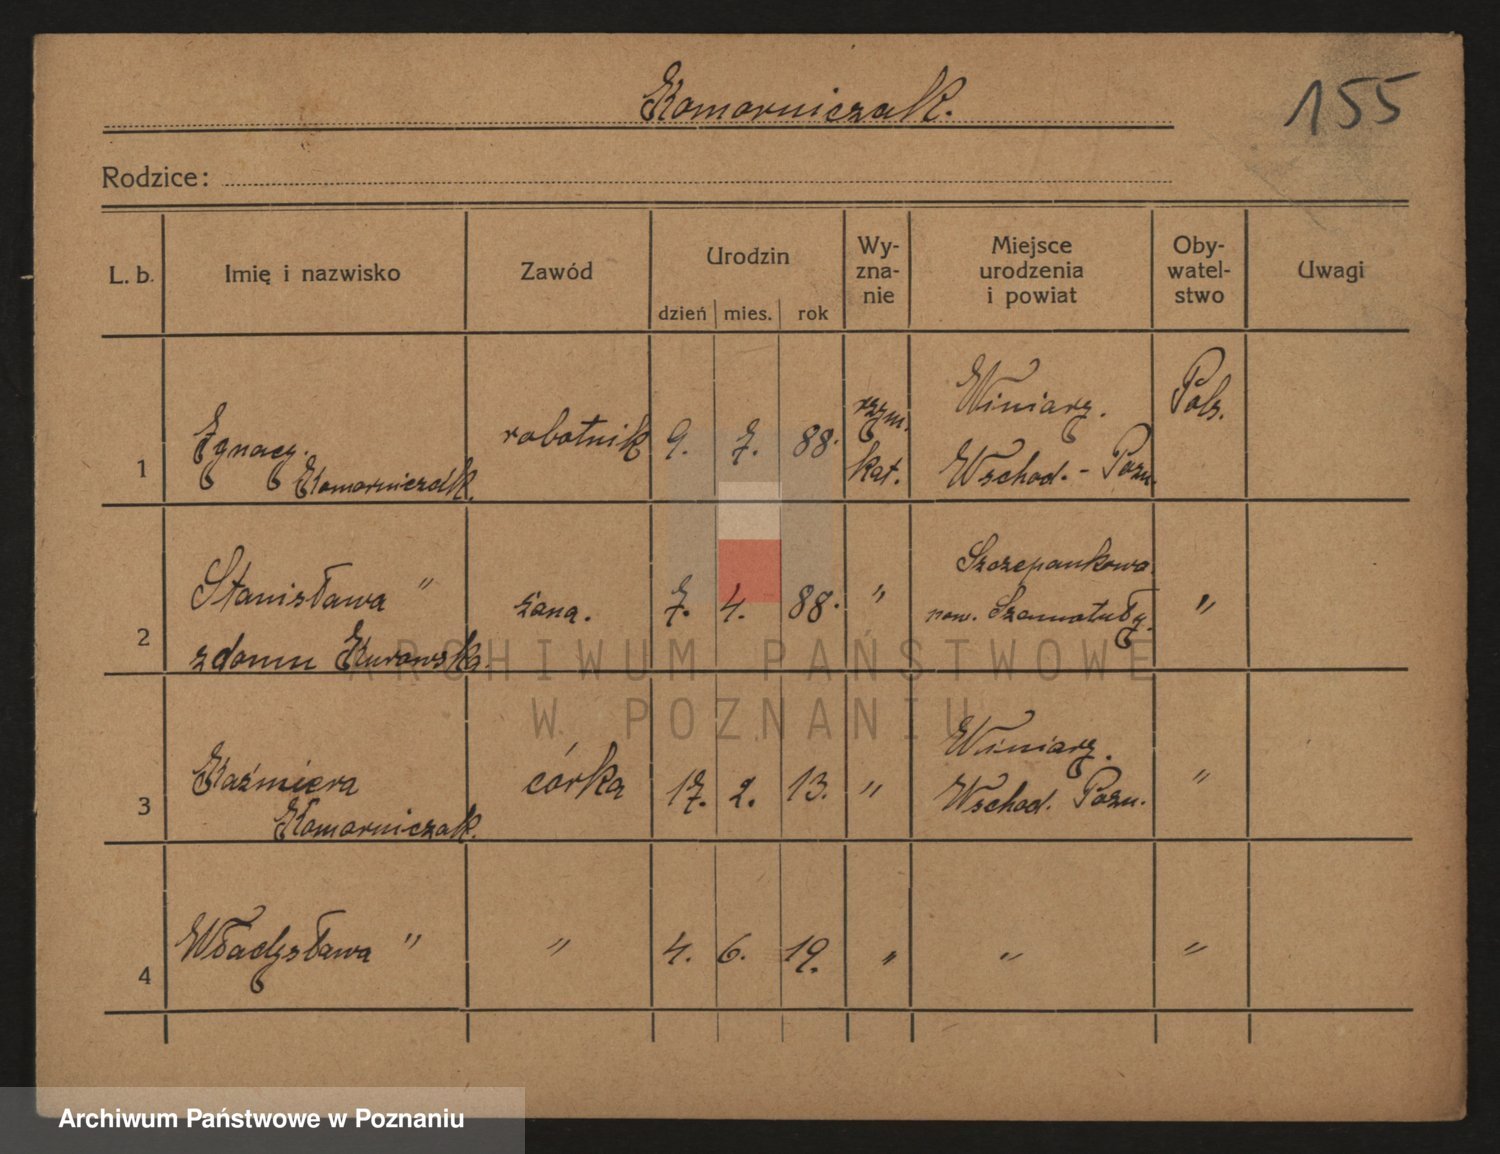 Komorniczak.
155
Rodzice:
L. b. Imię i nazwisko Zawód Urodzin dzień mies. rok Wy-zna-nie Miejsce urodzenia i powiat Oby-watel-stwo Uwagi
1 Ignacy. Komorniczak. robotnik 9. 7. 88. rzym. kat. Winiary. Wschod. - Pozn. Pols.
2 Stanisława " z domu Kurowska. żona. 7. 4. 88. " Szczepankowo. pow. Szamotuły. "
3 Kaźmiera Komorniczak. córka 17. 2. 13. " Winiary. Wschod. Pozn. "
4 Władysława " " 4. 6. 19. " " "
ARCHIWUM PAŃSTWOWE
W POZNANIU
Archiwum Państwowe w Poznaniu